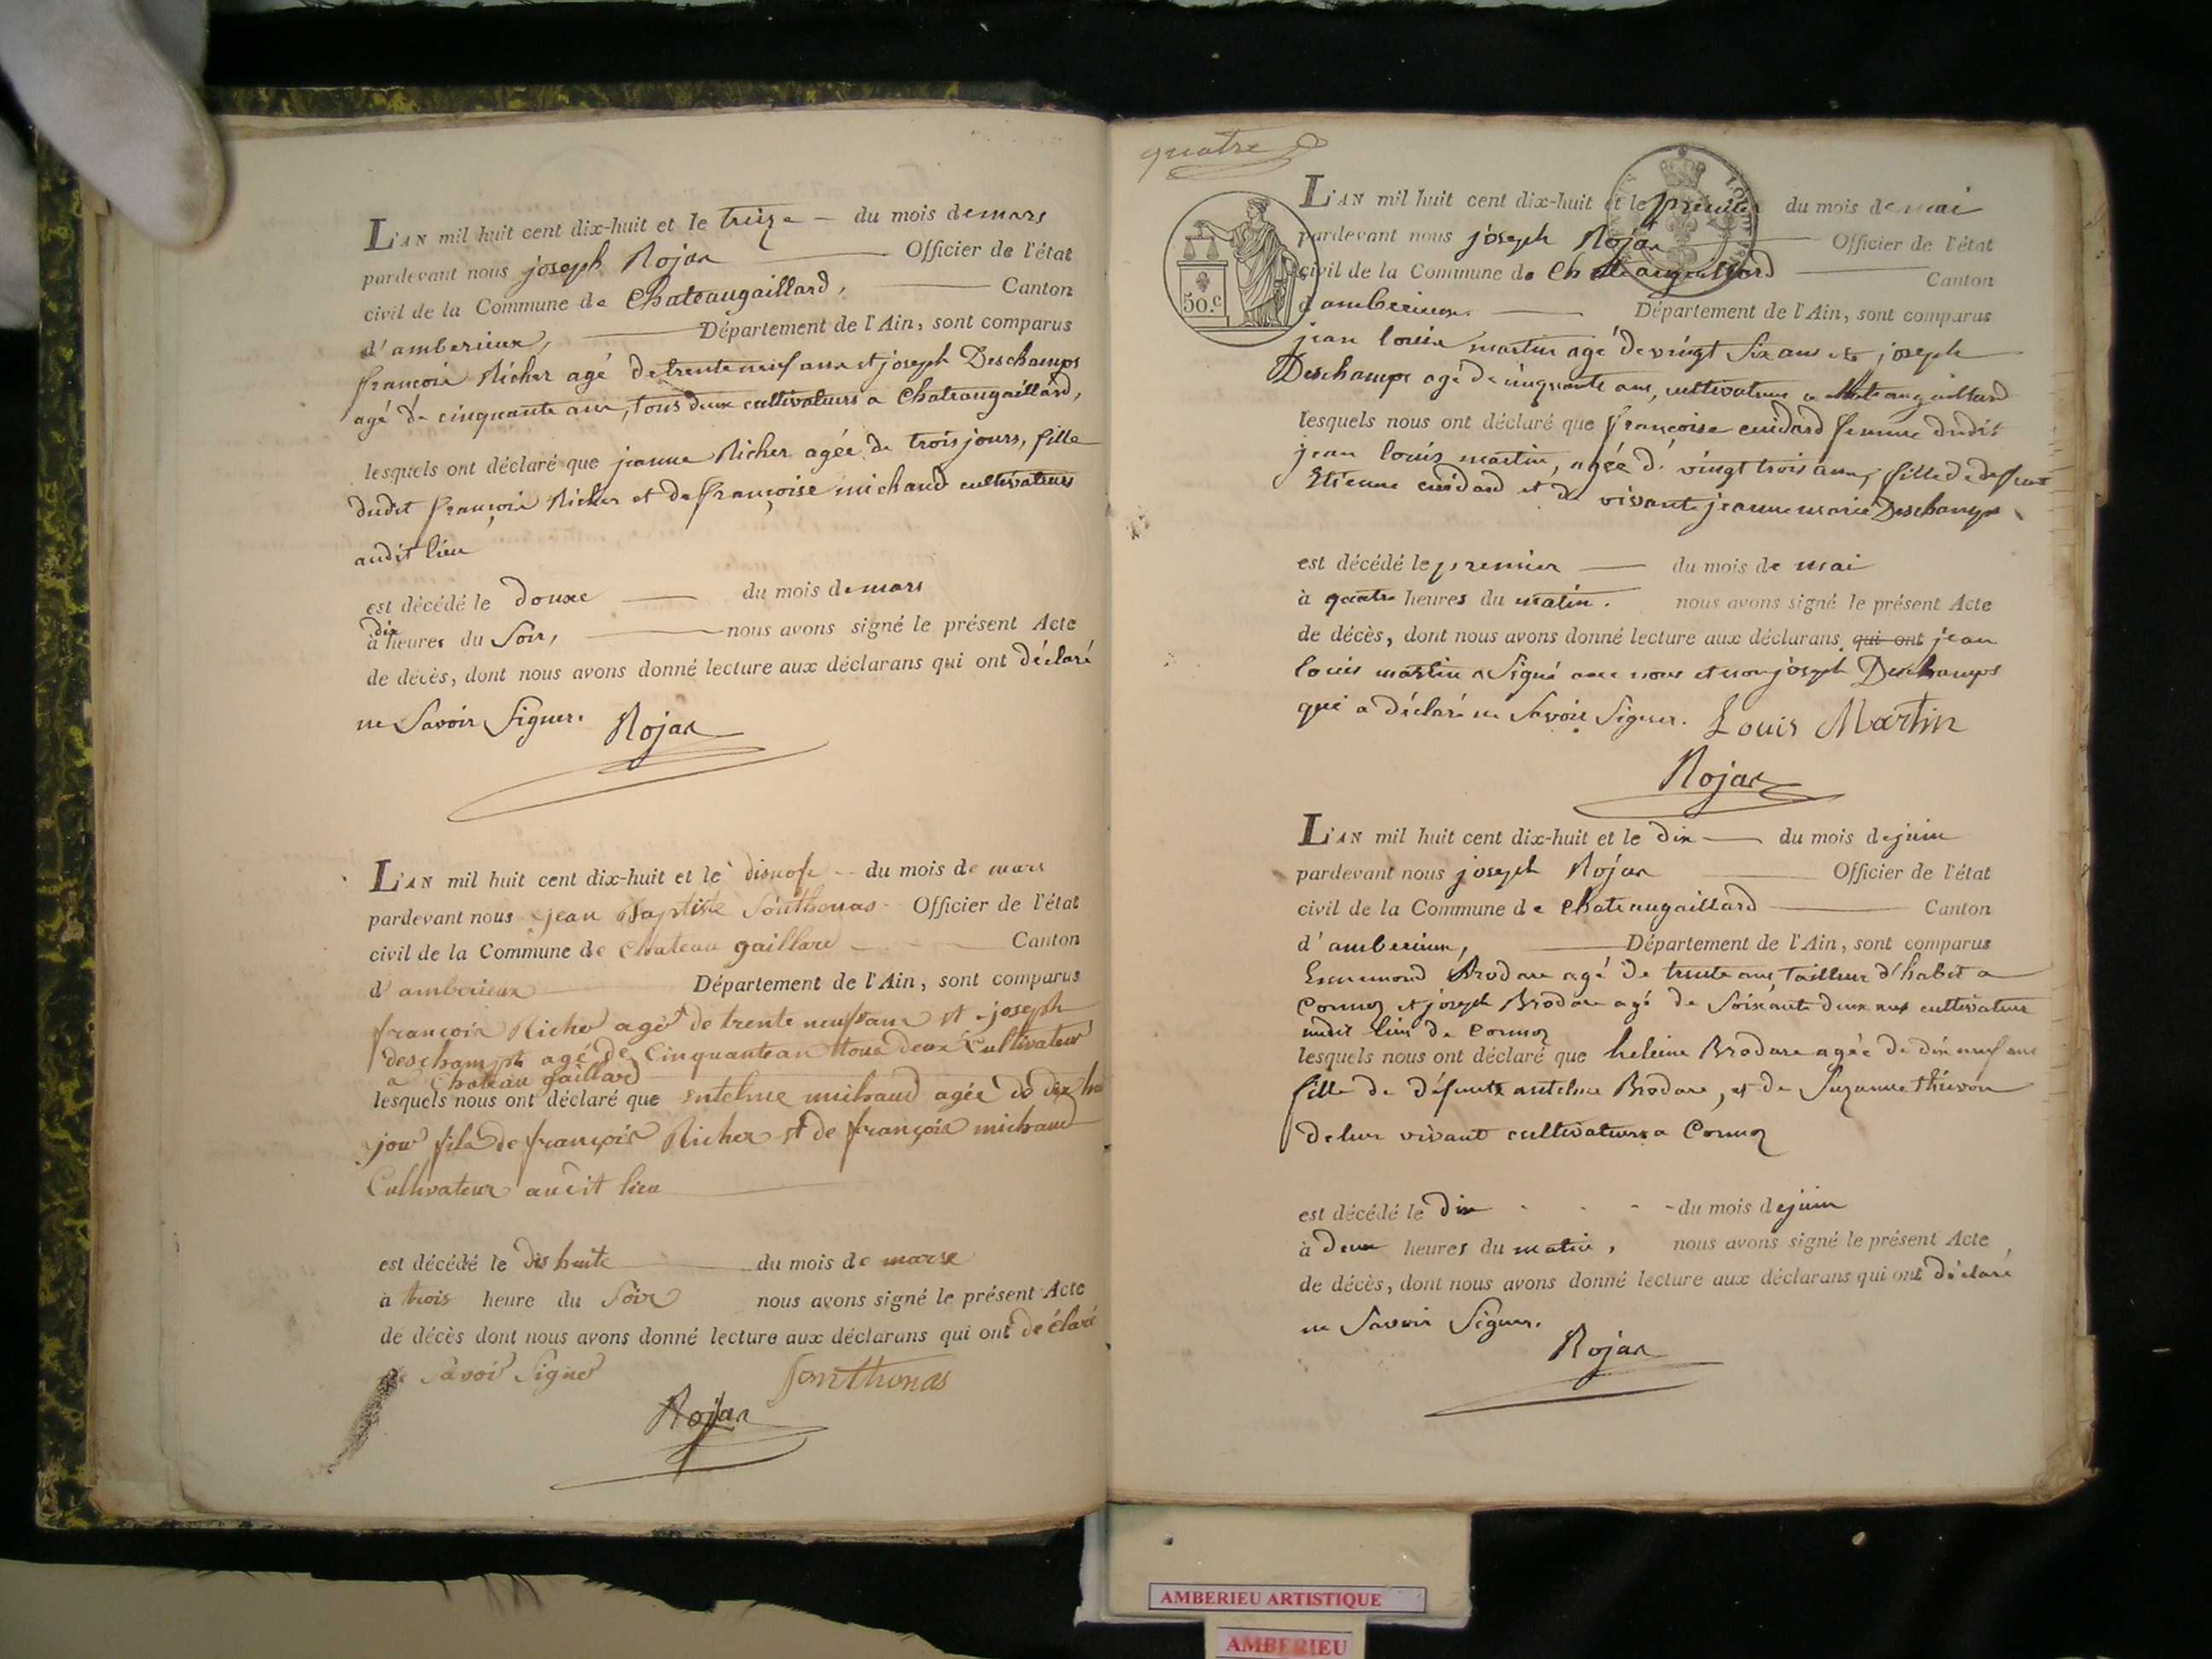 L'AN mil huit cent dix-huit et le treize du mois de mars
pardevant nous joseph Rojan Officier de l'état
civil de la Commune de Chateaugaillard, Canton
d'amberieux, Département de l'Ain, sont comparus
françois Richer agé de trente neuf ans et joseph Deschamps
agé de cinquante ans, tous deux cultivateurs a Chateaugaillard,
lesquels ont déclaré que jeanne Richer agée de trois jours, fille
dudit françois Richer et de françoise michaud cultivateurs
audit lieu
est décédé le douze du mois de mars
à dix heures du soir, nous avons signé le présent Acte
de décès, dont nous avons donné lecture aux déclarans qui ont déclaré
ne savoir signer. Rojan
L'AN mil huit cent dix-huit et le disnofe du mois de mars
pardevant nous jean Baptiste Sonthonas Officier de l'état
civil de la Commune de Chateau gaillard Canton
d'amberieux Département de l'Ain, sont comparus
françois Richer agé de trente neuf ans et joseph
deschampt agé de cinquante an tous deux Cultivateur
a Chateau gaillard
lesquels nous ont déclaré que entelme michaud agée de dix
jour fils de françois Richer et de françois michaud
Cultivateur audit lieu
est décédé le dis huite du mois de marse
à trois heure du soir nous avons signé le présent Acte
de décès dont nous avons donné lecture aux déclarans qui ont déclaré
savoir signer Sonthonas
Rojan
quatre
50.c
L'AN mil huit cent dix-huit et le premier du mois de mai
pardevant nous joseph Rojan Officier de l'état
civil de la Commune de Chateaugaillard Canton
d'amberieux Département de l'Ain, sont comparus
jean louis martin agé de vingt six ans et joseph
Deschamps agé de cinquante ans, cultivateurs a chateaugaillard
lesquels nous ont déclaré que françoise cuidard femme dudit
jean louis martin, agée de vingt trois ans, fille de defunt
Etienne cuidard et de vivante jeanne marie Deschamps
est décédé le premier du mois de mai
à quatre heures du matin. nous avons signé le présent Acte
de décès, dont nous avons donné lecture aux déclarans, qui ont jean
louis martin a signé avec nous et non joseph Deschamps
qui a déclaré ne savoir signer. Louis Martin
Rojan
L'AN mil huit cent dix-huit et le dix du mois de juin
pardevant nous joseph Rojan Officier de l'état
civil de la Commune de Chateaugaillard Canton
d'amberieux, Département de l'Ain, sont comparus
Ennemond Brodare agé de trente ans, Tailleur d'habit a
Cormoz et joseph Brodare agé de soixante deux ans cultivateur
audit lieu de Cormoz
lesquels nous ont déclaré que heleine Brodare agée de dix neuf ans
fille de défunts antelme Brodare, et de Suzanne thévon
de leur vivant cultivateurs a Cormoz
est décédé le dix du mois de juin
à deux heures du matin, nous avons signé le présent Acte
de décès, dont nous avons donné lecture aux déclarans qui ont déclaré
ne savoir signer.
Rojan
AMBERIEU ARTISTIQUE
AMBERIEU